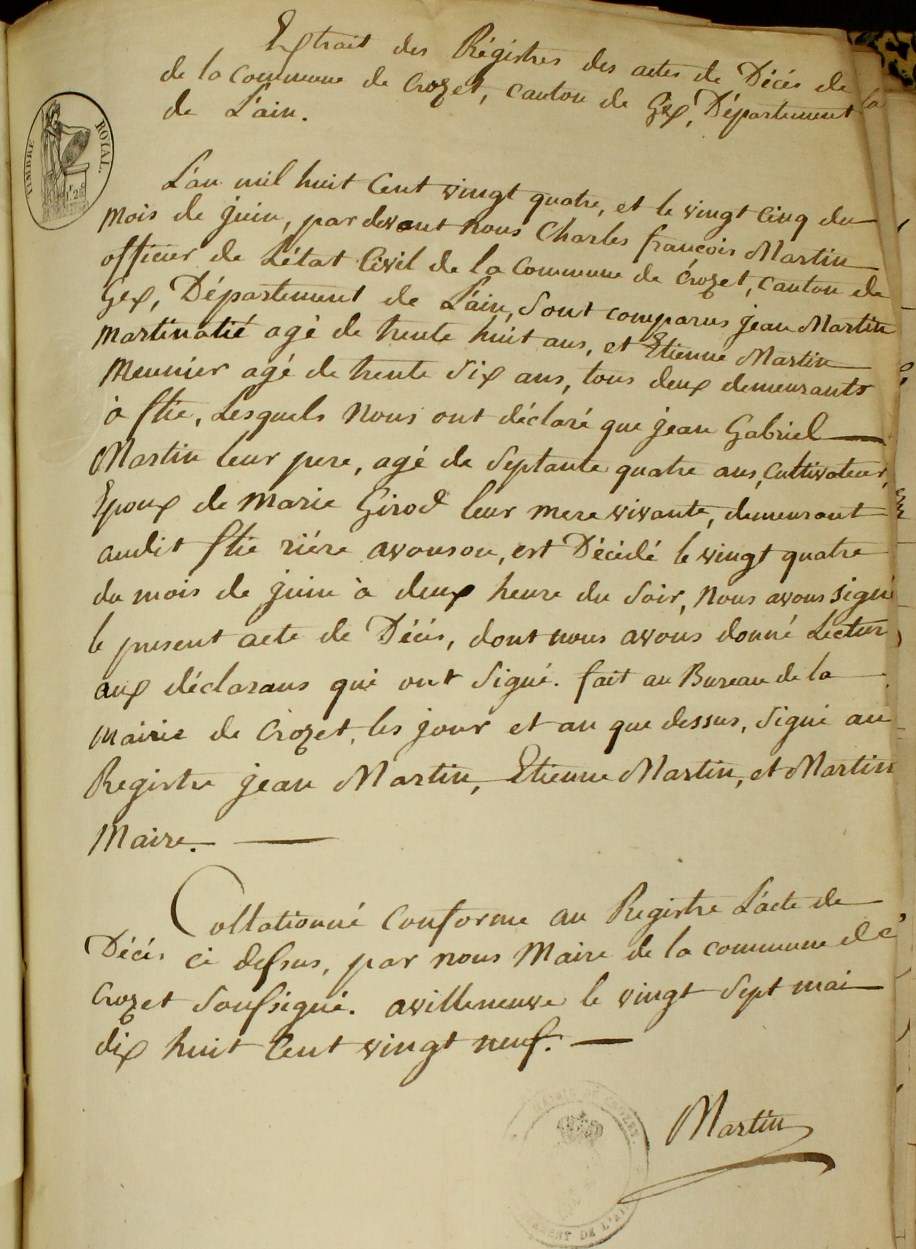 Extrait des Régistres des actes de Décés de la
de la Commune de Crozet, canton de Gex, Département
de L'ain.
TIMBRE ROYAL.
L'an mil huit Cent vingt quatre, et le vingt Cinq du
Mois de juin, par devant nous Charles françois Martin
officier de L'état Civil de la Commune de Crozet, canton de
Gex, Département de L'ain, Sont comparus jean Martin
Martinatié agé de trente huit ans, et Etienne Martin
Meunier agé de trente Six ans, tous deux demeurants
à flie, Lesquels Nous ont déclaré que jean Gabriel
Martin leur pere, agé de Septante quatre ans, Cultivateur,
Epoux de Marie Girod leur mere vivante, demeurant
audit flie riére avouson, est Décédé le vingt quatre
du mois de juin à deux heure du Soir, Nous avons signé
le present acte de Décés, dont nous avons donné Lecture
aux déclarans qui ont Signé. fait au Bureau de la
Mairie de Crozet, les jour et an que dessus, Signé au
Registre jean Martin, Etienne Martin, et Martin
Maire.
Collationné Conforme au Registre L'acte de
Décés ci dessus, par nous Maire de la commune de
Crozet Soussigné. avilleneuve le vingt Sept mai
dix huit Cent vingt neuf.
Martin
MAIRIE DE CROZET
DE L'AIN